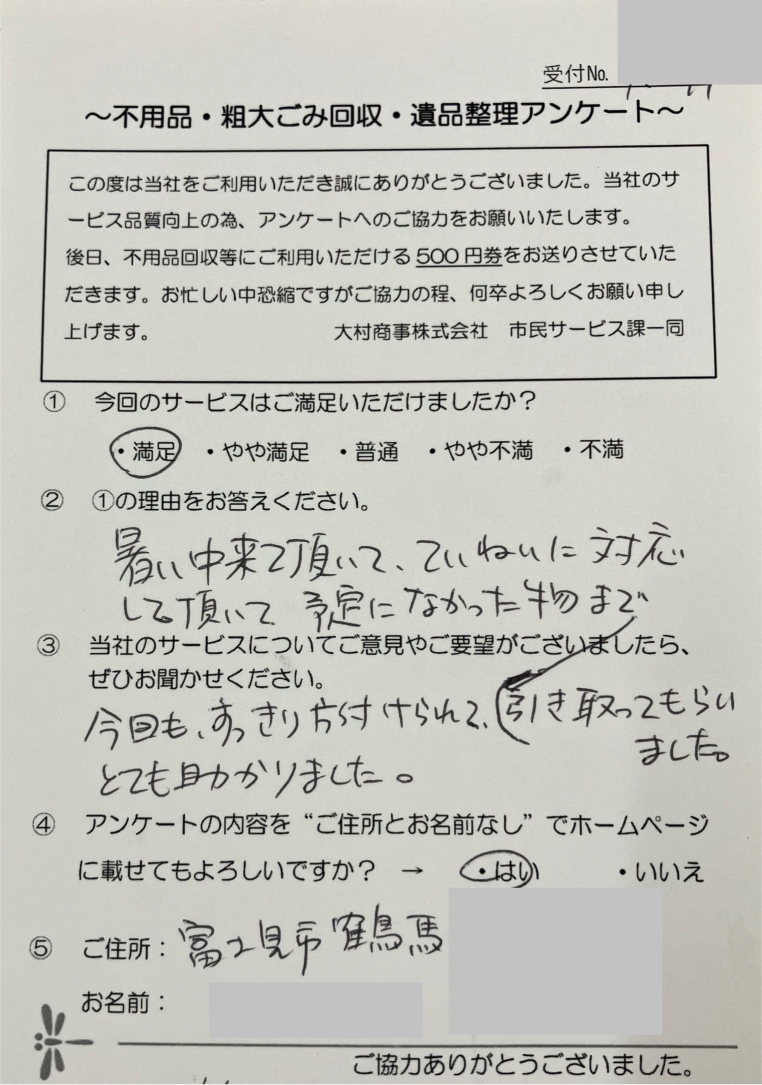 受付No.
～不用品・粗大ごみ回収・遺品整理アンケート～
この度は当社をご利用いただき誠にありがとうございました。当社のサ
ービス品質向上の為、アンケートへのご協力をお願いいたします。
後日、不用品回収等にご利用いただける500円券をお送りさせていた
だきます。お忙しい中恐縮ですがご協力の程、何卒よろしくお願い申し
上げます。 大村商事株式会社 市民サービス課一同
① 今回のサービスはご満足いただけましたか？
・満足 ・やや満足 ・普通 ・やや不満 ・不満
② ①の理由をお答えください。
暑い中来て頂いて、ていねいに対応
して頂いて 予定になかった物まで
引き取ってもらい
ました。
③ 当社のサービスについてご意見やご要望がございましたら、
ぜひお聞かせください。
今回も、すっきり片付けられて、
とても助かりました。
④ アンケートの内容を“ご住所とお名前なし”でホームページ
に載せてもよろしいですか？ → ・はい ・いいえ
⑤ ご住所：富士見市鶴馬
お名前：
ご協力ありがとうございました。